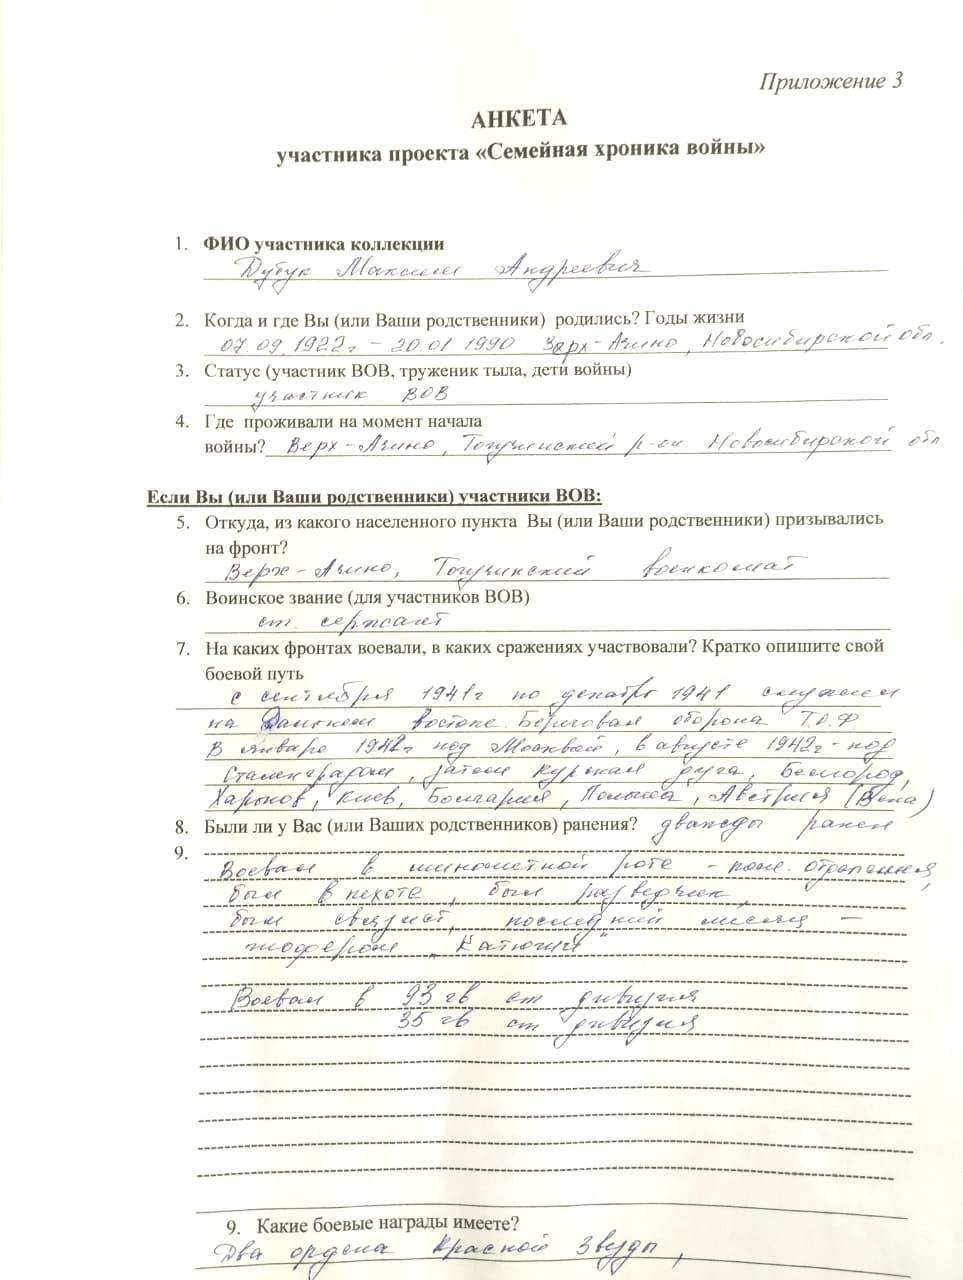 Приложение 3
АНКЕТА
участника проекта «Семейная хроника войны»
1. ФИО участника коллекции
Дубук Максим Андреевич
2. Когда и где Вы (или Ваши родственники) родились? Годы жизни
07.09.1922г – 20.01 1990 Верх-Ачино, Новосибирской обл.
3. Статус (участник ВОВ, труженик тыла, дети войны)
участник ВОВ
4. Где проживали на момент начала
войны? Верх-Ачино, Тогучинский р-он Новосибирской обл
Если Вы (или Ваши родственники) участники ВОВ:
5. Откуда, из какого населенного пункта Вы (или Ваши родственники) призывались
на фронт?
Верх-Ачино, Тогучинский военкомат
6. Воинское звание (для участников ВОВ)
ст. сержант
7. На каких фронтах воевали, в каких сражениях участвовали? Кратко опишите свой
боевой путь
с сентября 1941г по декабрь 1941 служил
на Дальнем востоке. Береговая оборона Т.О.Ф
В январе 1942г под Москвой, в августе 1942г - под
Сталинградом, затем Курская дуга, Белгород,
Харьков, Киев, Болгария, Польша, Австрия (Вена)
8. Были ли у Вас (или Ваших родственников) ранения? дважды ранен
9.
Воевал в минометной роте - ком. отделения,
был в пехоте, был разведчик,
был связист, последний месяц –
шофером "Катюши"
Воевал в 93 гв ст дивизия
35 гв ст дивизия
9. Какие боевые награды имеете?
Два ордена Красной Звезды,